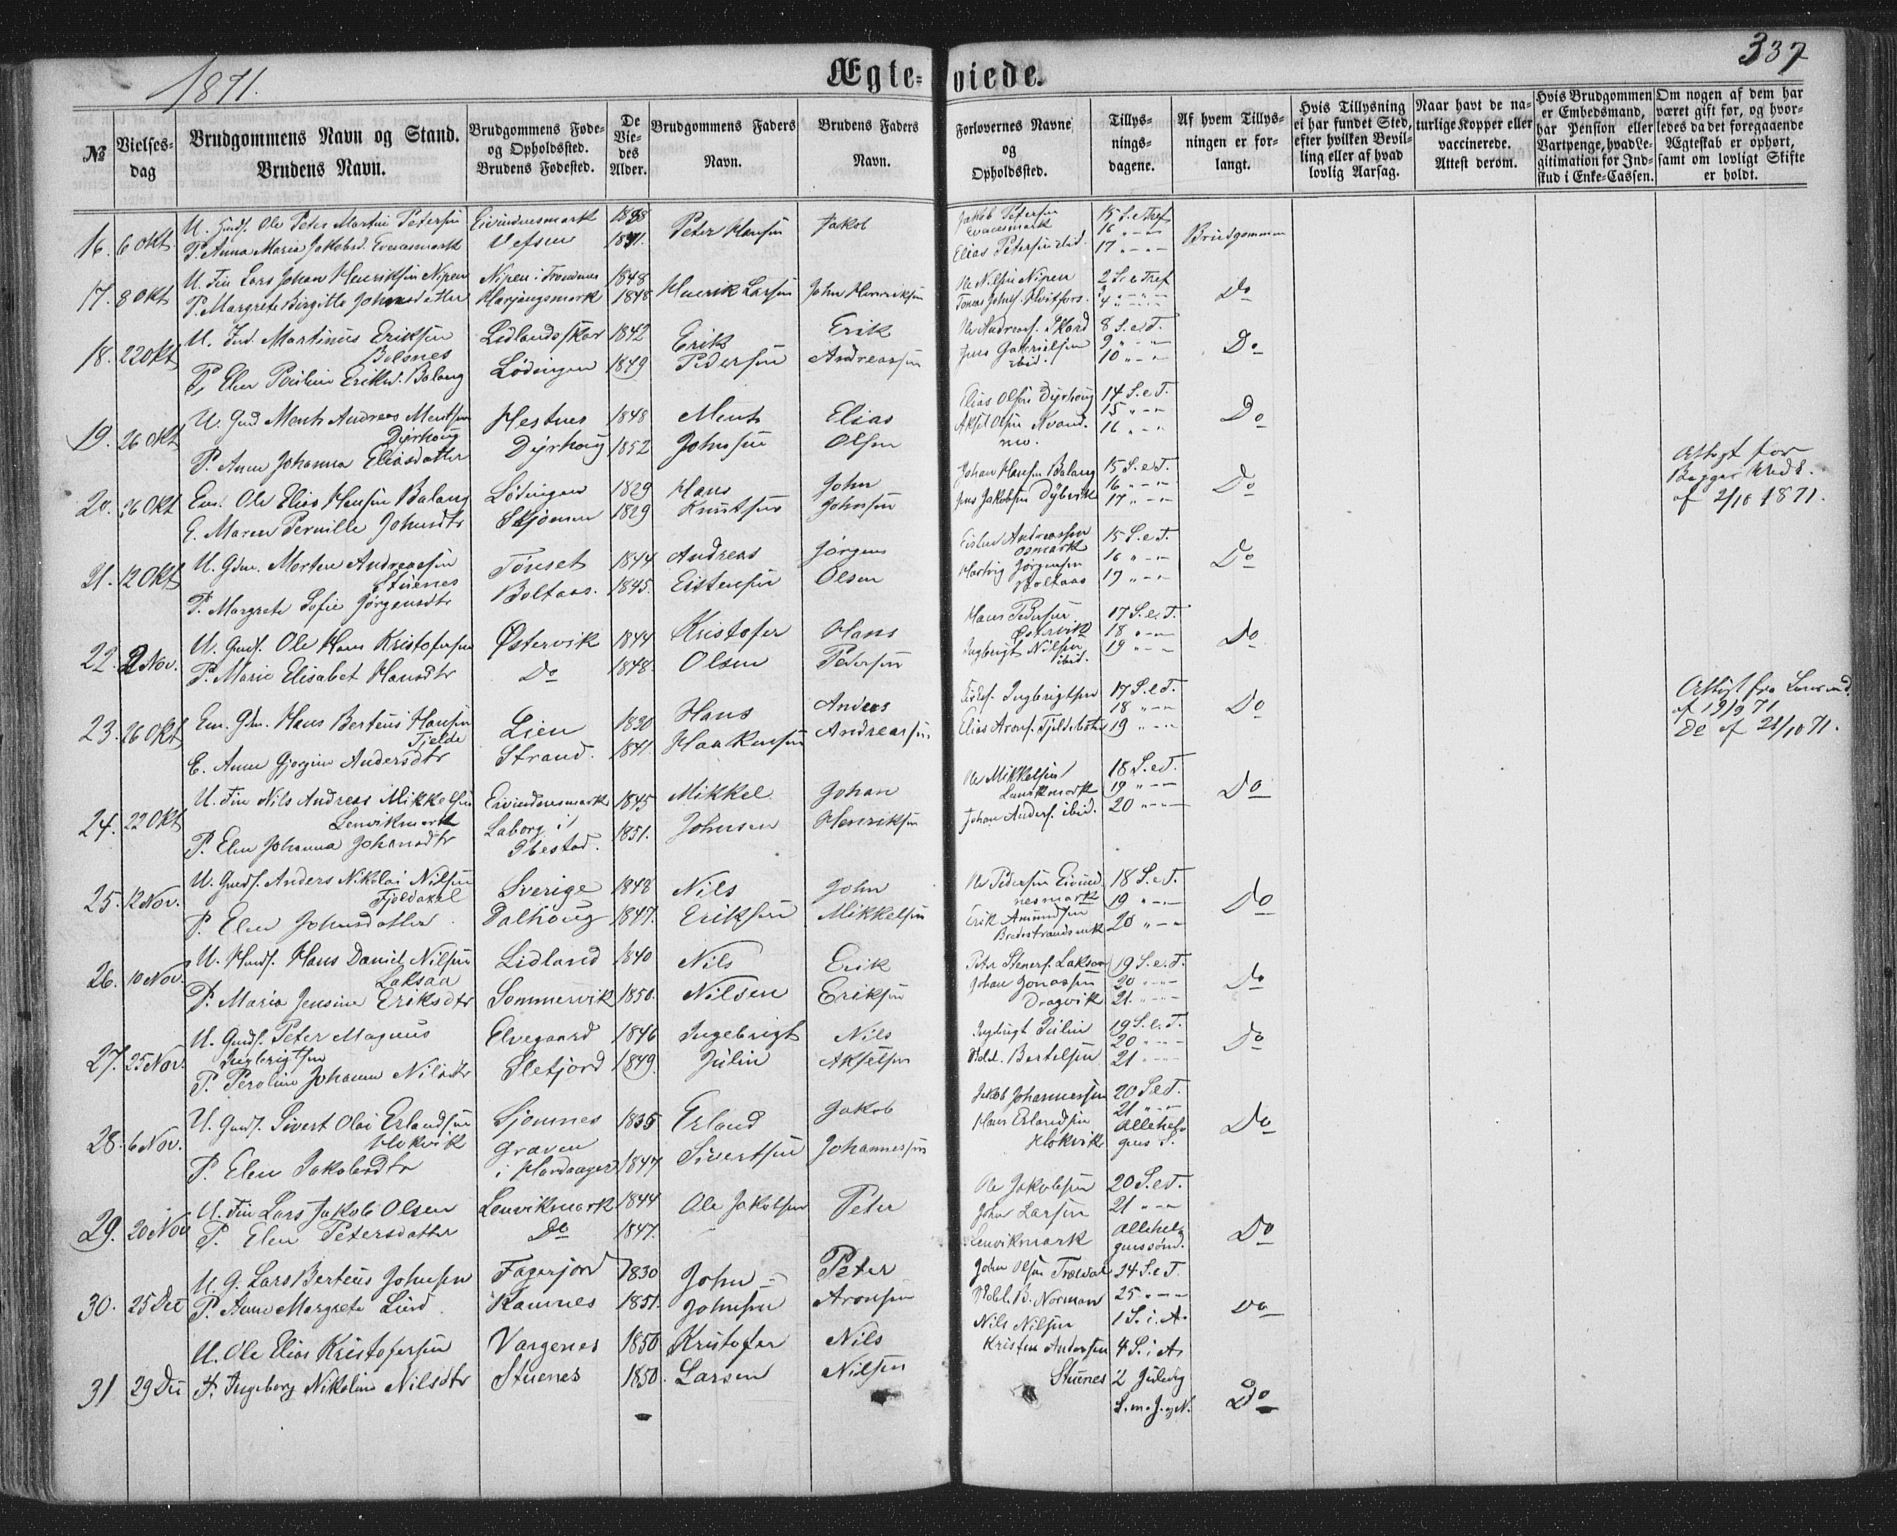 1871.
Ægteviede.
337
№
Vielses-dag
Brudgommens Navn og Stand. Brudens Navn.
Brudgommens Føde- og Opholdssted. Brudens Fødested.
De Viedes Alder.
Brudgommens Faders Navn.
Brudens Faders Navn.
Forlovernes Navne og Opholdssted.
Tillysningsdagene.
Af hvem Tillysningen er forlangt.
Hvis Tillysning ei har fundet Sted, efter hvilken Bevilling eller af hvad lovlig Aarsag.
Naar havt de naturlige Kopper eller vaccinerede. Attest derom.
Hvis Brudgommen er Embedsmand, har Pension eller Vartpenge, hvad Legitimation for Indskud i Enke-Cassen.
Om nogen af dem har været gift før, og hvorledes da det foregaaende Ægteskab er ophørt, samt om lovligt Skifte er holdt.
16. 6 Okt U. Ole Peter Martin Petersen Eivindnesmark 1848 Peter Hansen Jakob Jakob Petersen 15 S. e. Tref Brudgommen
P. Anna Maria Jakobsd. Evenesmark Vefsen Evenesmark 16 " – –
Elias Petersen ibid. 17 " – –
17. 8 Okt U. Fin Lars Johan Henriksen Nipen Nipen i Trondenes 1848 Henrik Larsen John Henriksen Ole Nilsen Nipen 2 S. e. Tref Do
P. Margrete Birgitte Johnsdatter Herjangsmark 1848 Tomas Johns.
18. 22 Okt U. Ind. Martinus Eriksen Lidlandsskar 1842 Erik Erik Ole Andreas. Skard 8 S. e. T. Do
Balsnes Jens Gabrielsen 9 " – –
P. Elen Pauline Eriksd. Balang Lødingen 1849 Pedersen Andreassen ibid. 10 " – –
19. 26 Okt U. Gmd Ments Andreas Mentsen Hestnes 1848 Ments Elias Elias Olsen Dyrhoug 14 S. e. T. Do
Dyrhoug Aksel Olsen 15 " – –
P. Anne Johanna Eliasdatter Dyrhoug 1852 Johnsen Olsen 16 " – –
20. 26 Okt Em. Ole Elias Hansen Balang Lødingen 1829 Hans John Johan Hansen Balang 15 S. e. T. Do Attest for Begges Vedk. af 2/10 1871.
E. Maren Pernille Johnsdtr Skjomen 1829 Knutsen Johnsen Jens Jakobsen Dybvik 16 " – –
17 " – –
21. 12 Okt U. Gdm. Morten Andreassen Tønset 1844 Andreas Jørgen Andreassen 15 S. e. T. Do
Stuenes Osmark 16 " – –
P. Margrete Sofie Jørgensdtr Boltaas. 1845. Eistensen Olsen Hartvig Jørgensen Boltaas 17 " – –
22. 2 Nov. U. Gmds. Ole Hans Kristofersen Østervik 1844 Kristofer Hans Hans Pedersen Østervik 17 S. e. T. Do
P. Marie Elisabet Hansdtr Do 1848. Olsen Pedersen Ingbrigt Nilsen ibid. 18 " – –
19 " – –
23. 26 Okt Em. Gdm. Hans Berteus Hansen Lien 1830 Hans Anders Ingbrigtsen 17 S. e. T. Do Attest fra
Fjelde 18 " – – af 19/9 71
E. Anne Gjorgine Andersdtr Strand. 1841. Haakensen Andreassen Elias Arons. 19 " – – Do af 21/10 71.
24. 22 Okt U. Fin Nils Andreas Mikkelsen Eivindnesmark 1845 Mikkel Johan Ole Mikkelsen 18 S. e. T. Do
Lenvikmark Lenvikmark 19 " – –
P. Elen Johanna Johansdtr Laborg i Ibestad. 1851. Johnsen Henriksen Johan Anders. ibid. 20 " – –
25. 12 Nov. U. Gmds. Anders Nikolai Nilsen Sverige 1848 Nils John Ole Pedersen Eivindnesmark 18 S. e. T. Do
Fjeldaxel 19 " – –
P. Elen Johnsdatter Dalhoug 1847. Eriksen Mikkelsen Erik Amundsen 20 " – –
26. 10 Nov. U. Hmds. Hans Daniel Nilsen Lidland 1840 Nils Erik Peter Steners. Laksaa 19 S. e. T. Do
Laksaa Johan Jonassen 20 " – –
P. Maria Jensine Eriksdtr Sommervik 1850. Nilsen Eriksen Dragvik 21 " – –
27. 25 Nov. U. Gmds. Peter Magnus Elvegaard 1846 Ingebrigt Nils Ingbrigt Julin 19 S. e. T. Do
Ingbrigtsen 20 " – –
P. Peroline Johanna Nilsdtr Sletjord 1849. Julin Akselsen Bertelsen 21 " – –
28. 6 Nov. U. Gmds. Sivert Olai Erlandsen Sjomnes 1835 Erland Jakob Jakob Johannessen 20 S. e. T. Do
Hokvik Graven Hans Erlandsen 21 " – –
P. Elen Jakobsdtr i Hardanger 1847 Sivertsen Johannessen Hokvik Allehelgens S.
29. 20 Nov U. Fin Lars Jakob Olsen Lenvikmark 1844 Ole Jakobsen Peter Ole Jakobsen 20 S. e. T. Do
P. Elen Petersdatter Do 1847. Johan Larsen 21 " – –
Lenvikmark Allehelgenssønd.
30. 25 Dec U. G. Lars Berteus Johnsen Fagerjord 1830 John Peter John Olsen Trældal 24 S. e. T. Do
P. Anne Margrete Lind. Ramnes 1851. Johnsen Aronsen B. Norman 25 " – –
Nils Nilsen 1 S. i. A.
31 29 Dec U. Ole Elias Kristofersen Vargenes 1850 Kristofer Nils Kristen Andersen 4 S. i A. Do
P. Ingeborg Nikoline Nilsdtr Stuenes 1850. Larsen Nilsen Stuenes 2 Juledg
S. m. J. og N.